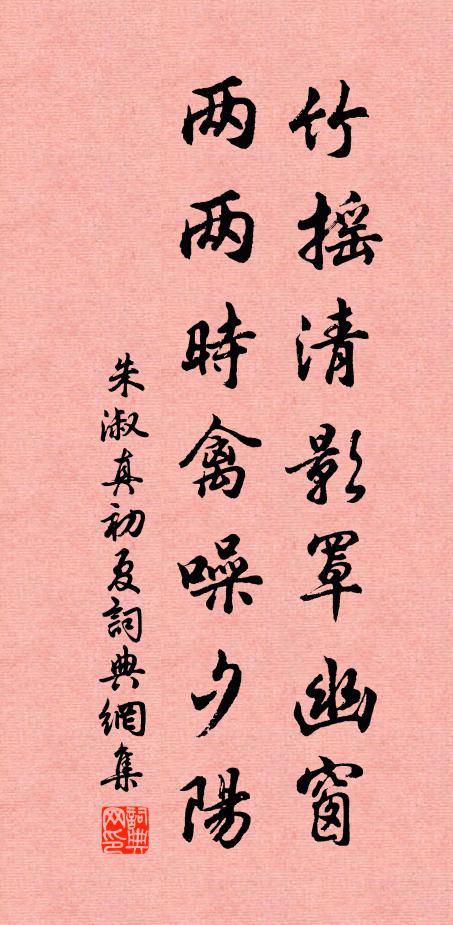 竹摇清影罩幽窗
两两時禽噪夕陽
朱淑真初夏詞典網集
詞典网印